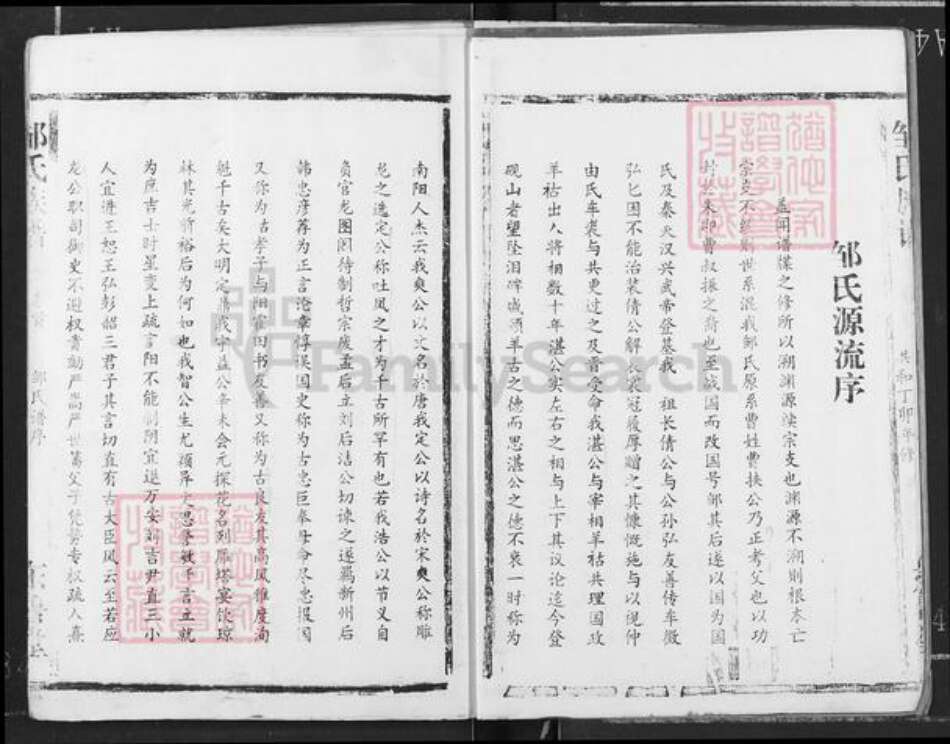 邹氏源流序
盖闻谱楪之修所以溯渊源渎宗支也渊源不溯则根本亡
宗支不 则世系混我邹氏原系曹姓曹挟公乃正考父也以功
封於朱即曹叔振之裔也至战国而改国号邹其后遂以国为国
氏及秦灭汉兴武帝登基我 祖长倩公与公孙弘友善传车徵
弘乞困不能治装倩公解衣裳冠履厚赠之其慷慨施与以倪仲
由氏车裘与共更过之及晋受命我湛公与宰相羊祜共理国政
羊祜出入将相数十年湛公实左右之相与上下其议论迄今登
砚山者望坠泪碑诚颂羊古之德而思湛公之德不衰一时称为
南阳人杰云我奭公以文名於唐我定公以诗名於宋奭公称雕
龙之选定公称吐凤之才为千古所罕有也若我浩公以节义自
负官龙图阁待制哲宗废孟后立刘后洁公切谏之遂羁新州后
韩忠彦荐为正言沦章惇误国史称为古忠臣奉母命尽忠报国
又称为古孝子与阳 田书友善又称为古良友其高风雅度洵
魁千古矣大明定鼎我守益公 会元探花名列雁塔宴饮琼
林其光前裕后为何如也我智公生尤颖 史思 数千言立就
为庶吉士时星变上疏言阳不能制阴宜退万安刘吉尹直三小
人宜进王恕王弘彭韶三君子其言切直有古大臣风云至若应
龙公职司御史不避权贵劾严嵩严世蕃父子凭势专权疏入嘉
邹氏族谱
邹氏谱序
共和丁卯年修
FamilySearch